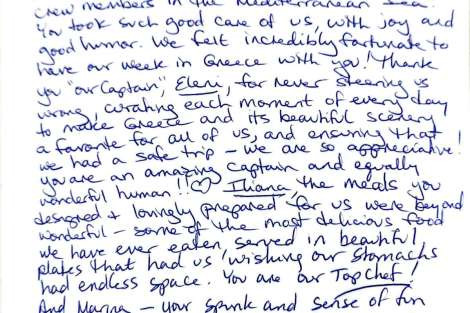 crew members in the Mediterranean Sea.
You took such good care of us, with joy and
good humor. We felt incredibly fortunate to
have our week in Greece with you! Thank
you "our Captain", Eleni, for never steering us
wrong, curating each moment of every day
to make Greece and its beautiful scenery
a favorite for all of us, and ensuring that
we had a safe trip – we are so appreciative!
you are an amazing captain and equally
wonderful human!! ♡ Iliana, the meals you
designed + lovingly prepared for us were beyond
wonderful – some of the most delicious food
we have ever eaten, served in beautiful
plates that had us wishing our stomachs
had endless space. You are our Top Chef!
And Marina – your spunk and sense of fun